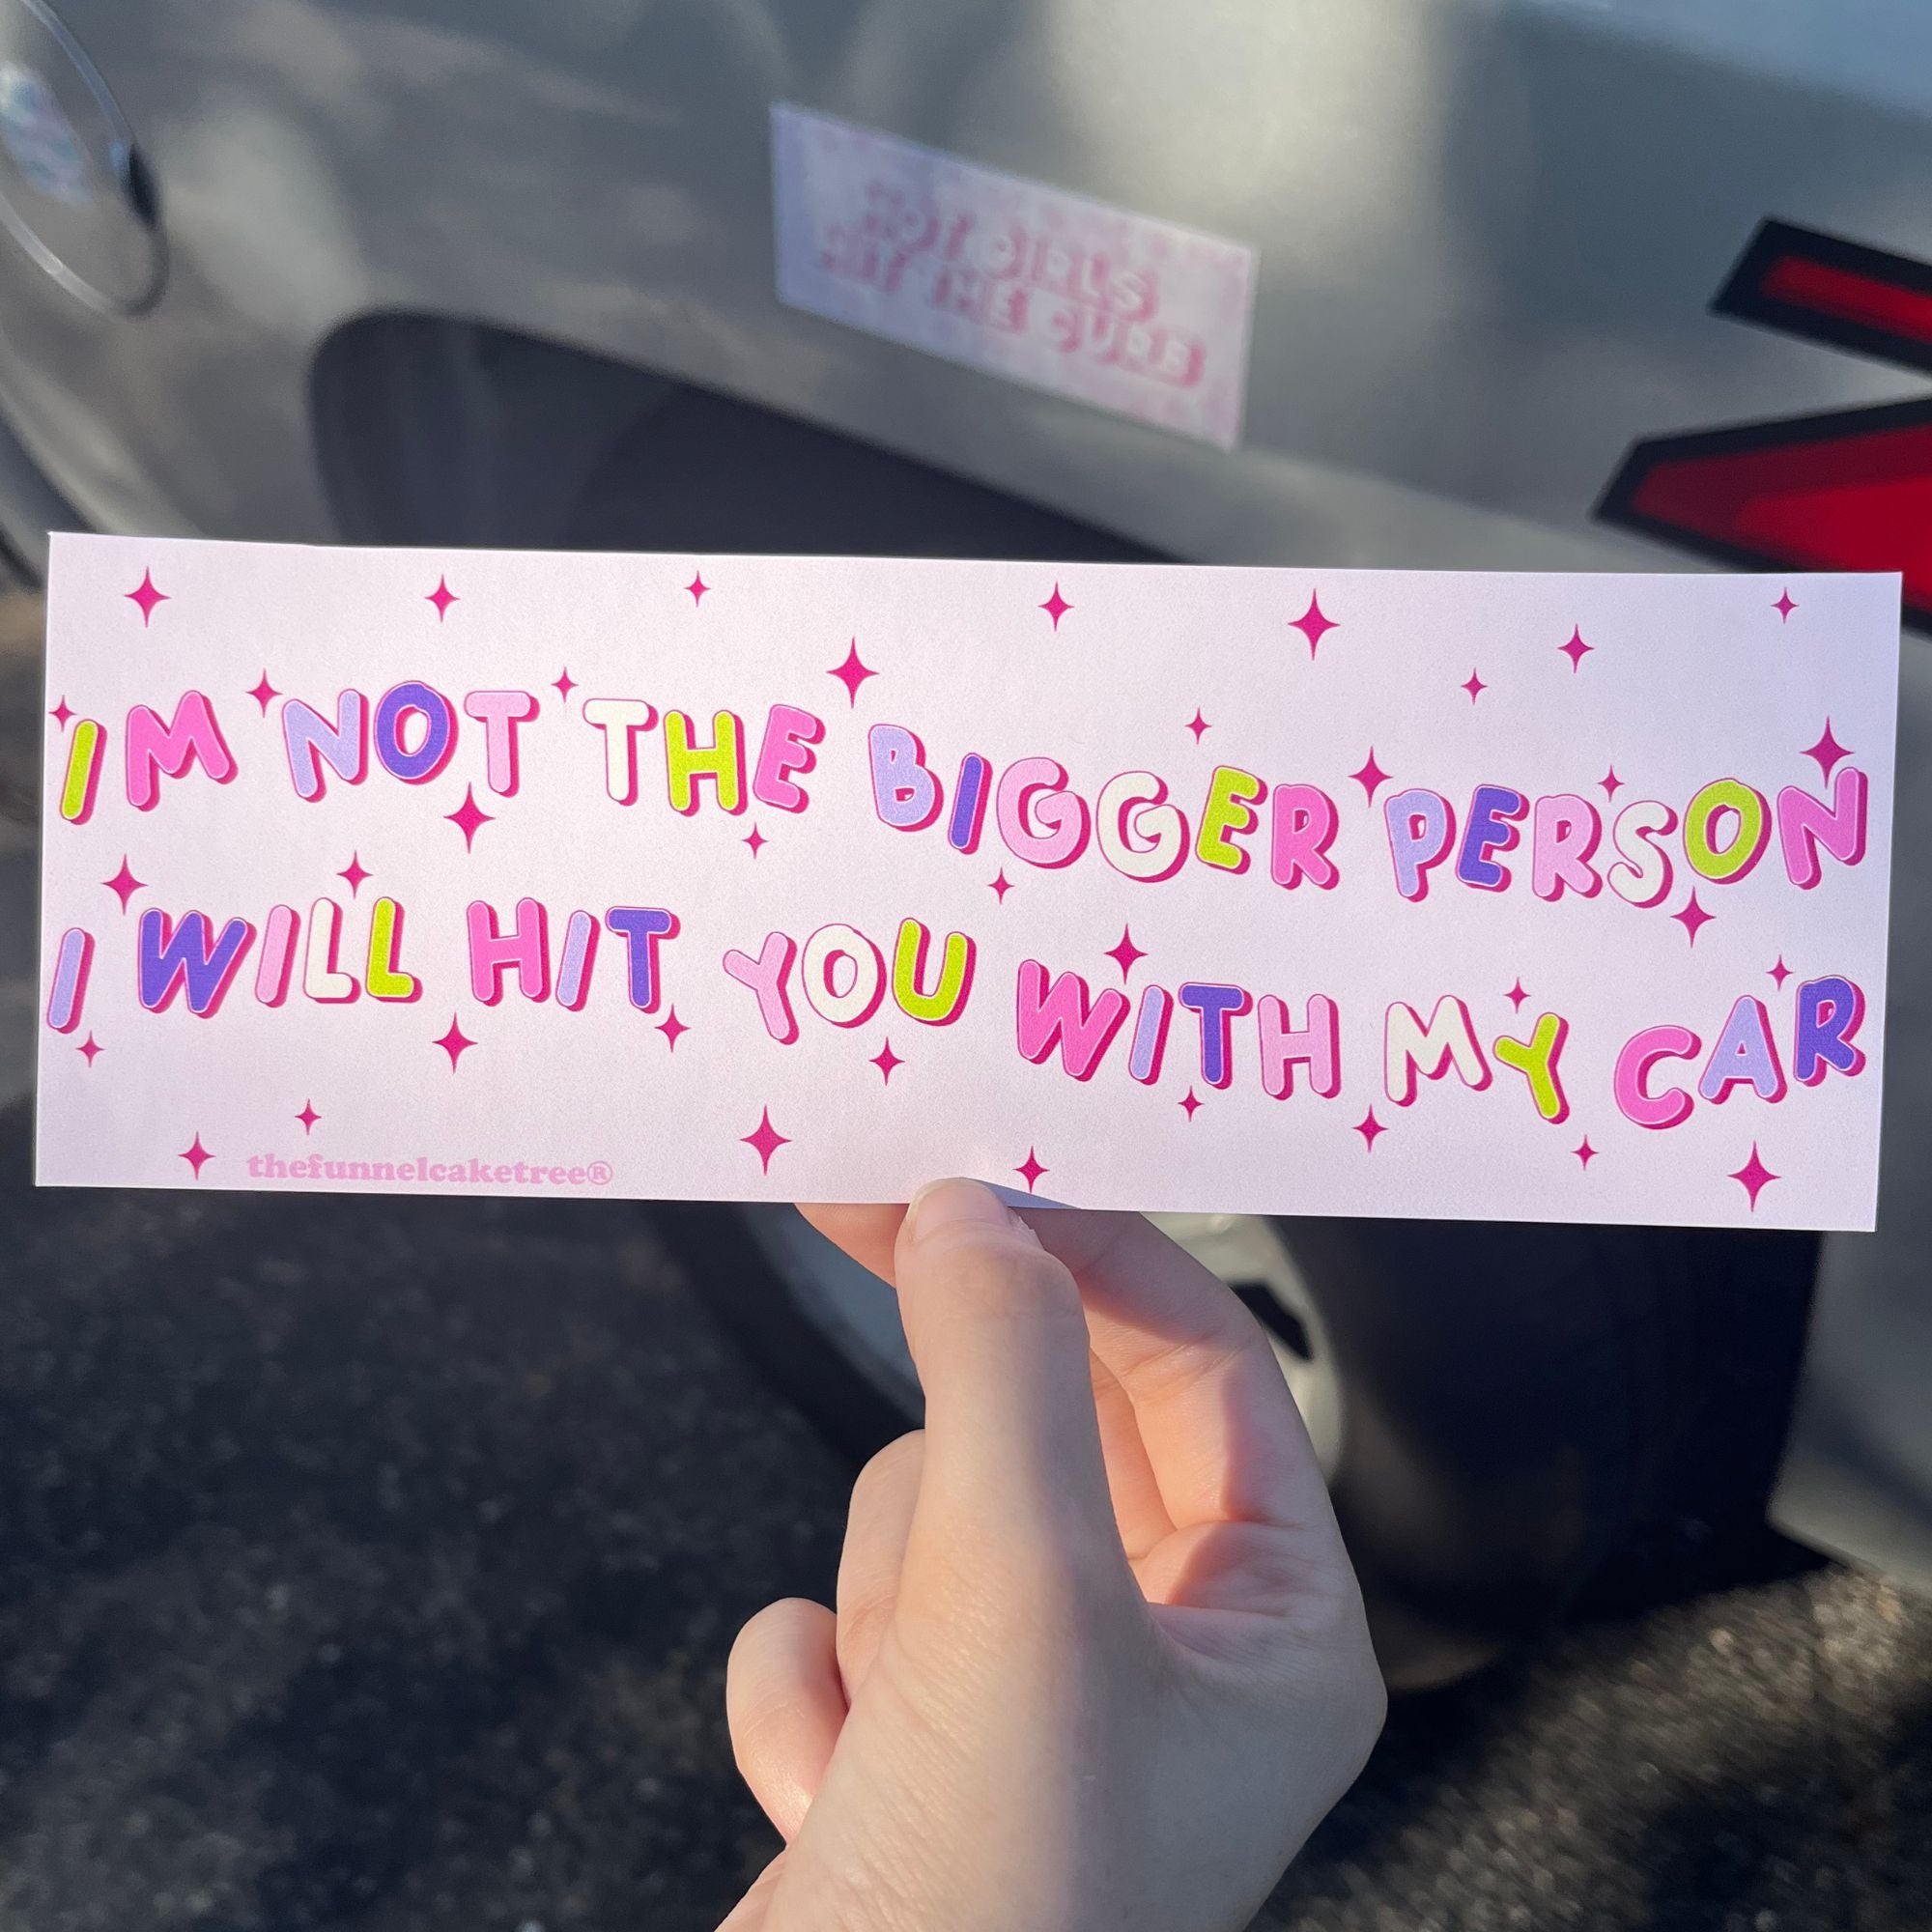 HOT GIRLS
HIT THE CURB
IM NOT THE BIGGER PERSON
I WILL HIT YOU WITH MY CAR
thefunnelcaketree®